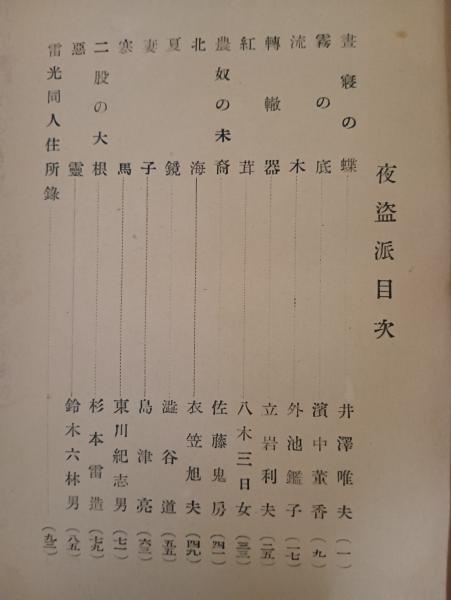 夜盜派目次
晝寢の蝶 井澤唯夫 (一)
霧の底 濱中董香 (九)
流木 外池鑑子 (一七)
轉轍器 立岩利夫 (二五)
紅茸 八木三日女 (三三)
農奴の未裔 佐藤鬼房 (四一)
北海 衣笠旭夫 (四九)
夏鏡 澁谷道 (五五)
妻子 島津亮 (六三)
寒馬 東川紀志男 (七一)
二股の大根 杉本雷造 (七九)
惡靈 鈴木六林男 (八五)
雷光同人住所錄 (九三)